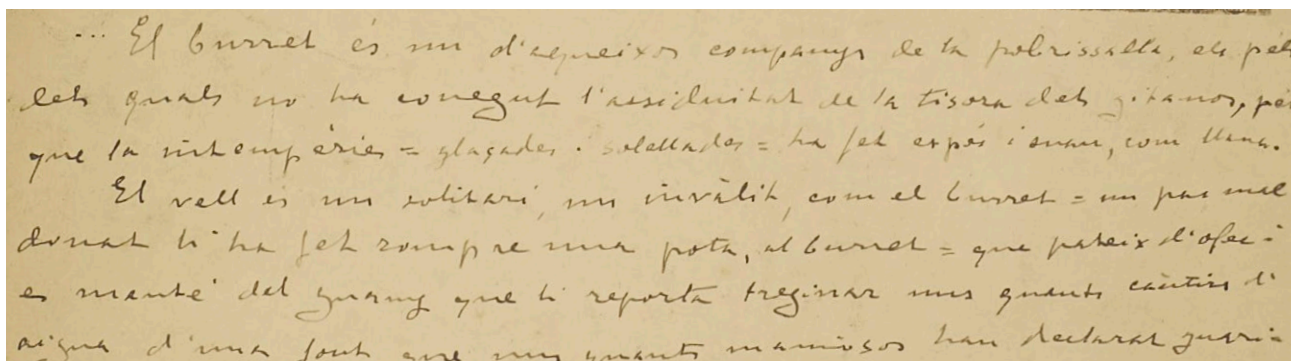 ... El burret és un d'aqueixos companys de la pobrissalla, els pèls
dels quals no ha conegut l'assiduitat de la tisora dels gitanos, pèl
que la intempèrie = glaçades i solellades = ha fet espés i suau, com llana.
El vell és un solitari, un invàlit, com el burret = un pas mal
donat li ha fet rompre una pota, al burret = que pateix d'ofec i
es manté del guany que li reporta treginar uns quants càntirs d'
aigua d'una font que uns quants maniosos han declarat guari-